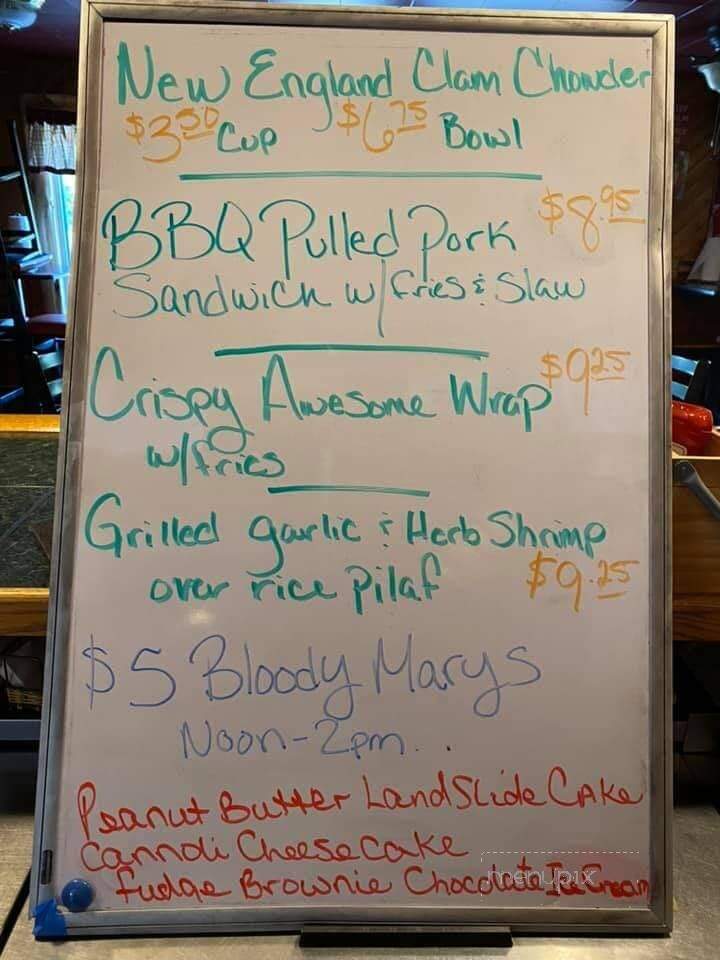 New England Clam Chowder
$3.50 Cup $6.75 Bowl
BBQ Pulled Pork $8.95
Sandwich w/fries & Slaw
Crispy Awesome Wrap $9.25
w/fries
Grilled garlic & Herb Shrimp
over rice pilaf $9.25
$5 Bloody Marys
Noon-2pm...
Peanut Butter LandSlide Cake
Cannoli Cheesecake
fudge Brownie Chocolate Ice Cream
menupix